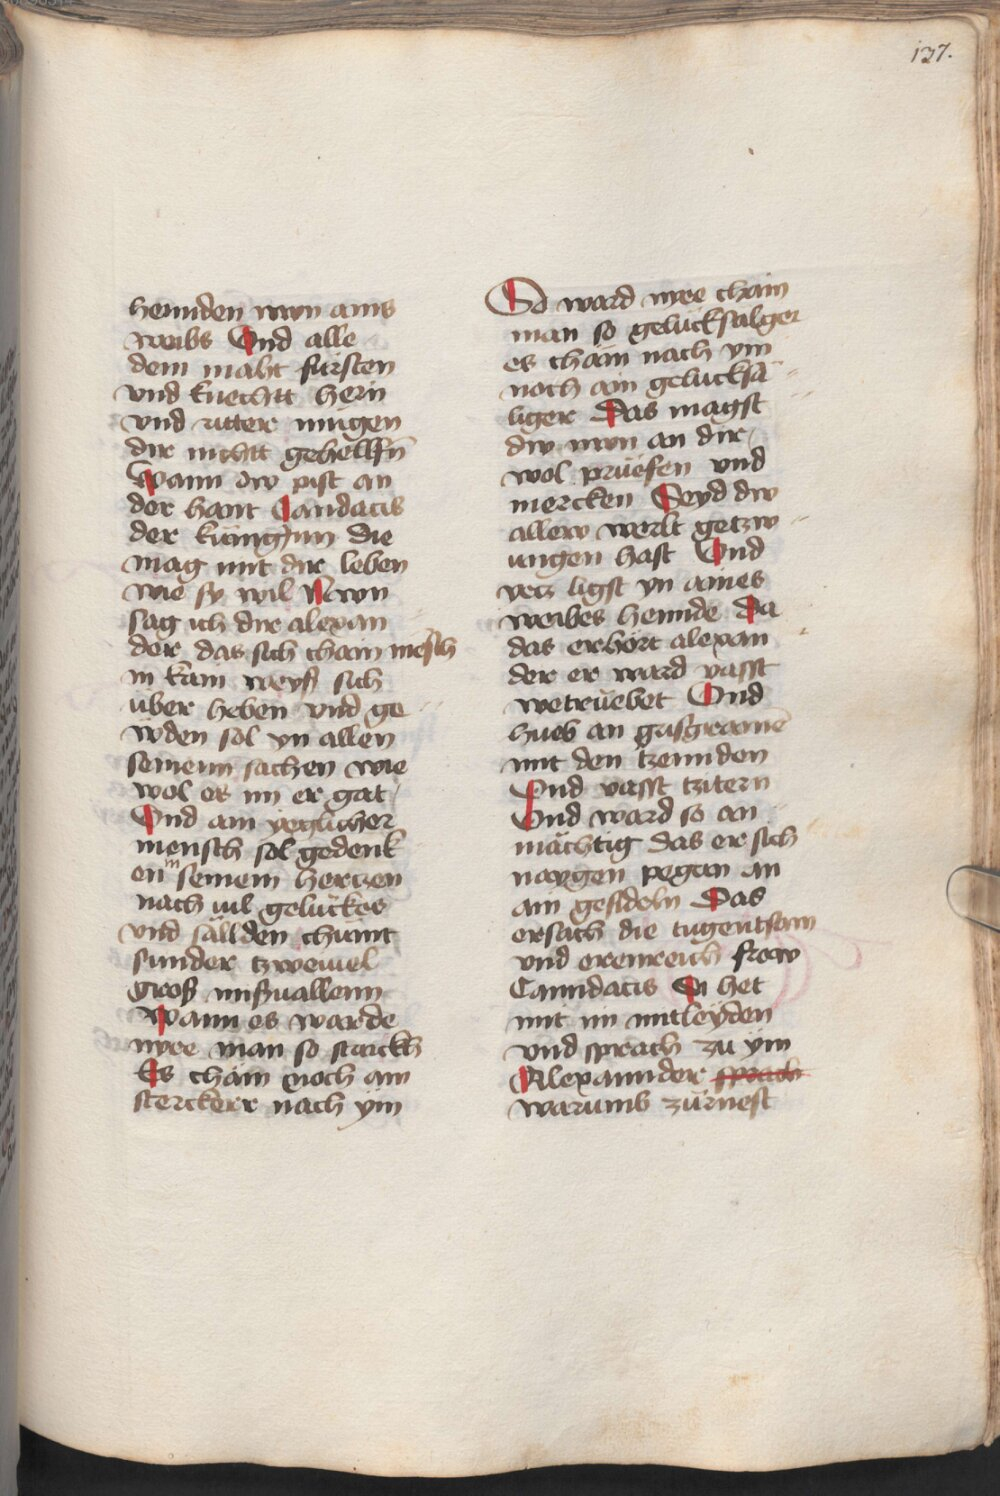 137.
hennden nwn ains
weibs Vnd alle
dem macht fürsten
vnd knechtt herin
vnd ritter mügen
dir nichtt gehelffn̄
Wann dw pist an
der hant Candacis
der küingynn die
mag mit dir leben
wie sy wil Nwn
sag ich dir alexan
der das sich chain mesch
in kain weyß sich
über heben vnd ge
wden sol yn allen
seinenn sachen wie
wol es im er gat
Vnd ain yeglicher
mensch sol gedenk
en in seinem hertzen
nach uil gelückes
vnd sällden chumt
sunder tzweiuel
groß mißuallenn
Wann es warde
nyee man so starckh
Es cham noch ain
sterckerr nach ym
So ward nyee chain
man so gelücksalger
es cham nach ym
noch ain gelücksä
liger Das magst
dw nwn an dir
wol prüefen vnd
mercken Seyd dw
allew werlt getzw
ungen hast Vnd
yetz ligst yn aines
weibes hennde Da
das erhört alexan
der er ward vasst
wetrüebet Vnd
hueb an grisgraamē
mit den tzennden
Vnd vasst tzitern
Vnd ward so an
mächtig das er sich
naygen pegan an
ain gesideln Das
ersach die tugentsam
vnd erenreich fraw
Canndacis Si het
mit im mitleyden
vnd sprach zu ym
Alexannder sprach
warumb zürnest